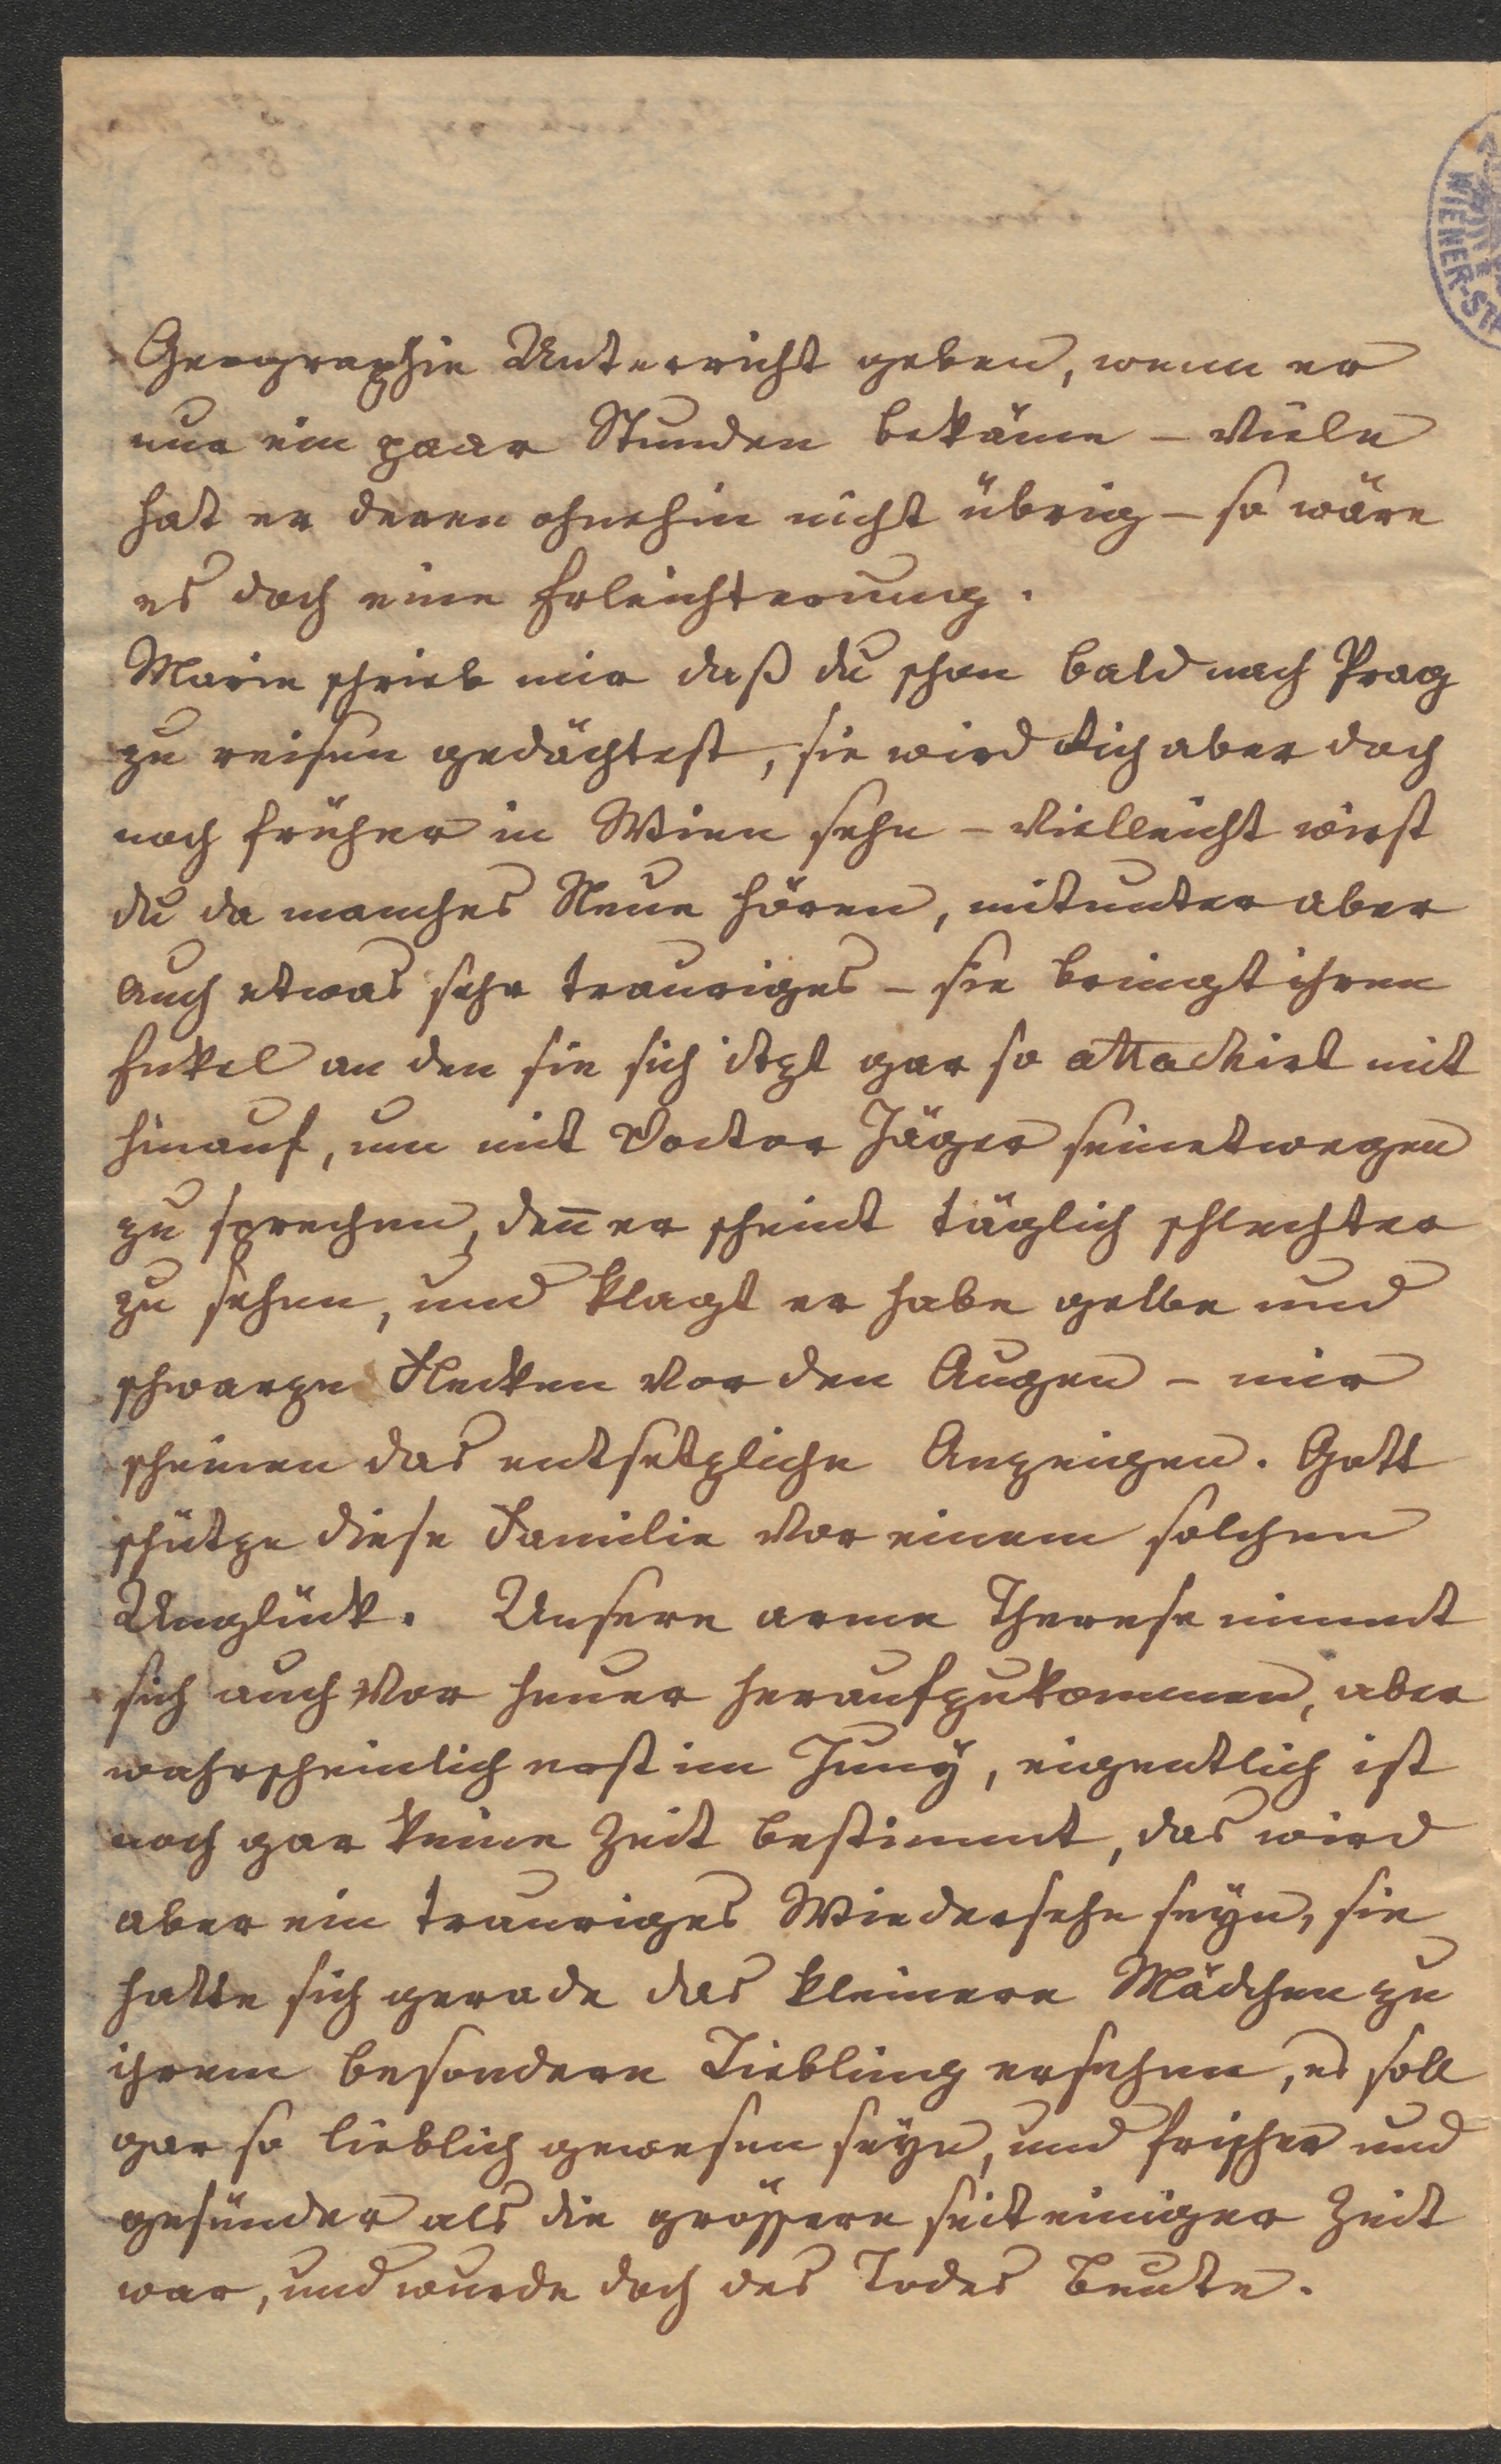 Geographie Unterricht geben, wenn er
nur ein paar Stunden bekäme – viele
hat er deren ohnehin nicht übrig – so wäre
es doch eine Erleichterung.
Marie schrieb mir daß du schon bald nach Prag
zu reisen gedächtest, sie wird dich aber doch
noch früher in Wien sehn – vielleicht wirst
du da manches Neue hören, mitunter aber
auch etwas sehr trauriges – sie bringt ihren
Enkel an den sie sich itzt gar so attachirt mit
hinauf, um mit Doctor Jäger seinetwegen
zu sprechen, deñ er scheint täglich schlechter
zu sehen, und klagt er habe gelbe und
schwarze Flecken vor den Augen – mir
scheinen das entsetzliche Anzeigen. Gott
schütze diese Familie vor einem solchen
Unglück. Unsere arme Therese nimmt
sich auch vor heuer heraufzukommen, aber
wahrscheinlich erst im Juny, eigentlich ist
noch gar keine Zeit bestimmt, das wird
aber ein trauriges Wiedersehn seyn, sie
hatte sich gerade das kleinere Mädchen zu
ihrem besondern Liebling ersehen, es soll
gar so lieblich gewesen seyn, und frischer und
gesünder als die grössere seit einiger Zeit
war, und wurde doch des Todes Beute.
WIENER-ST